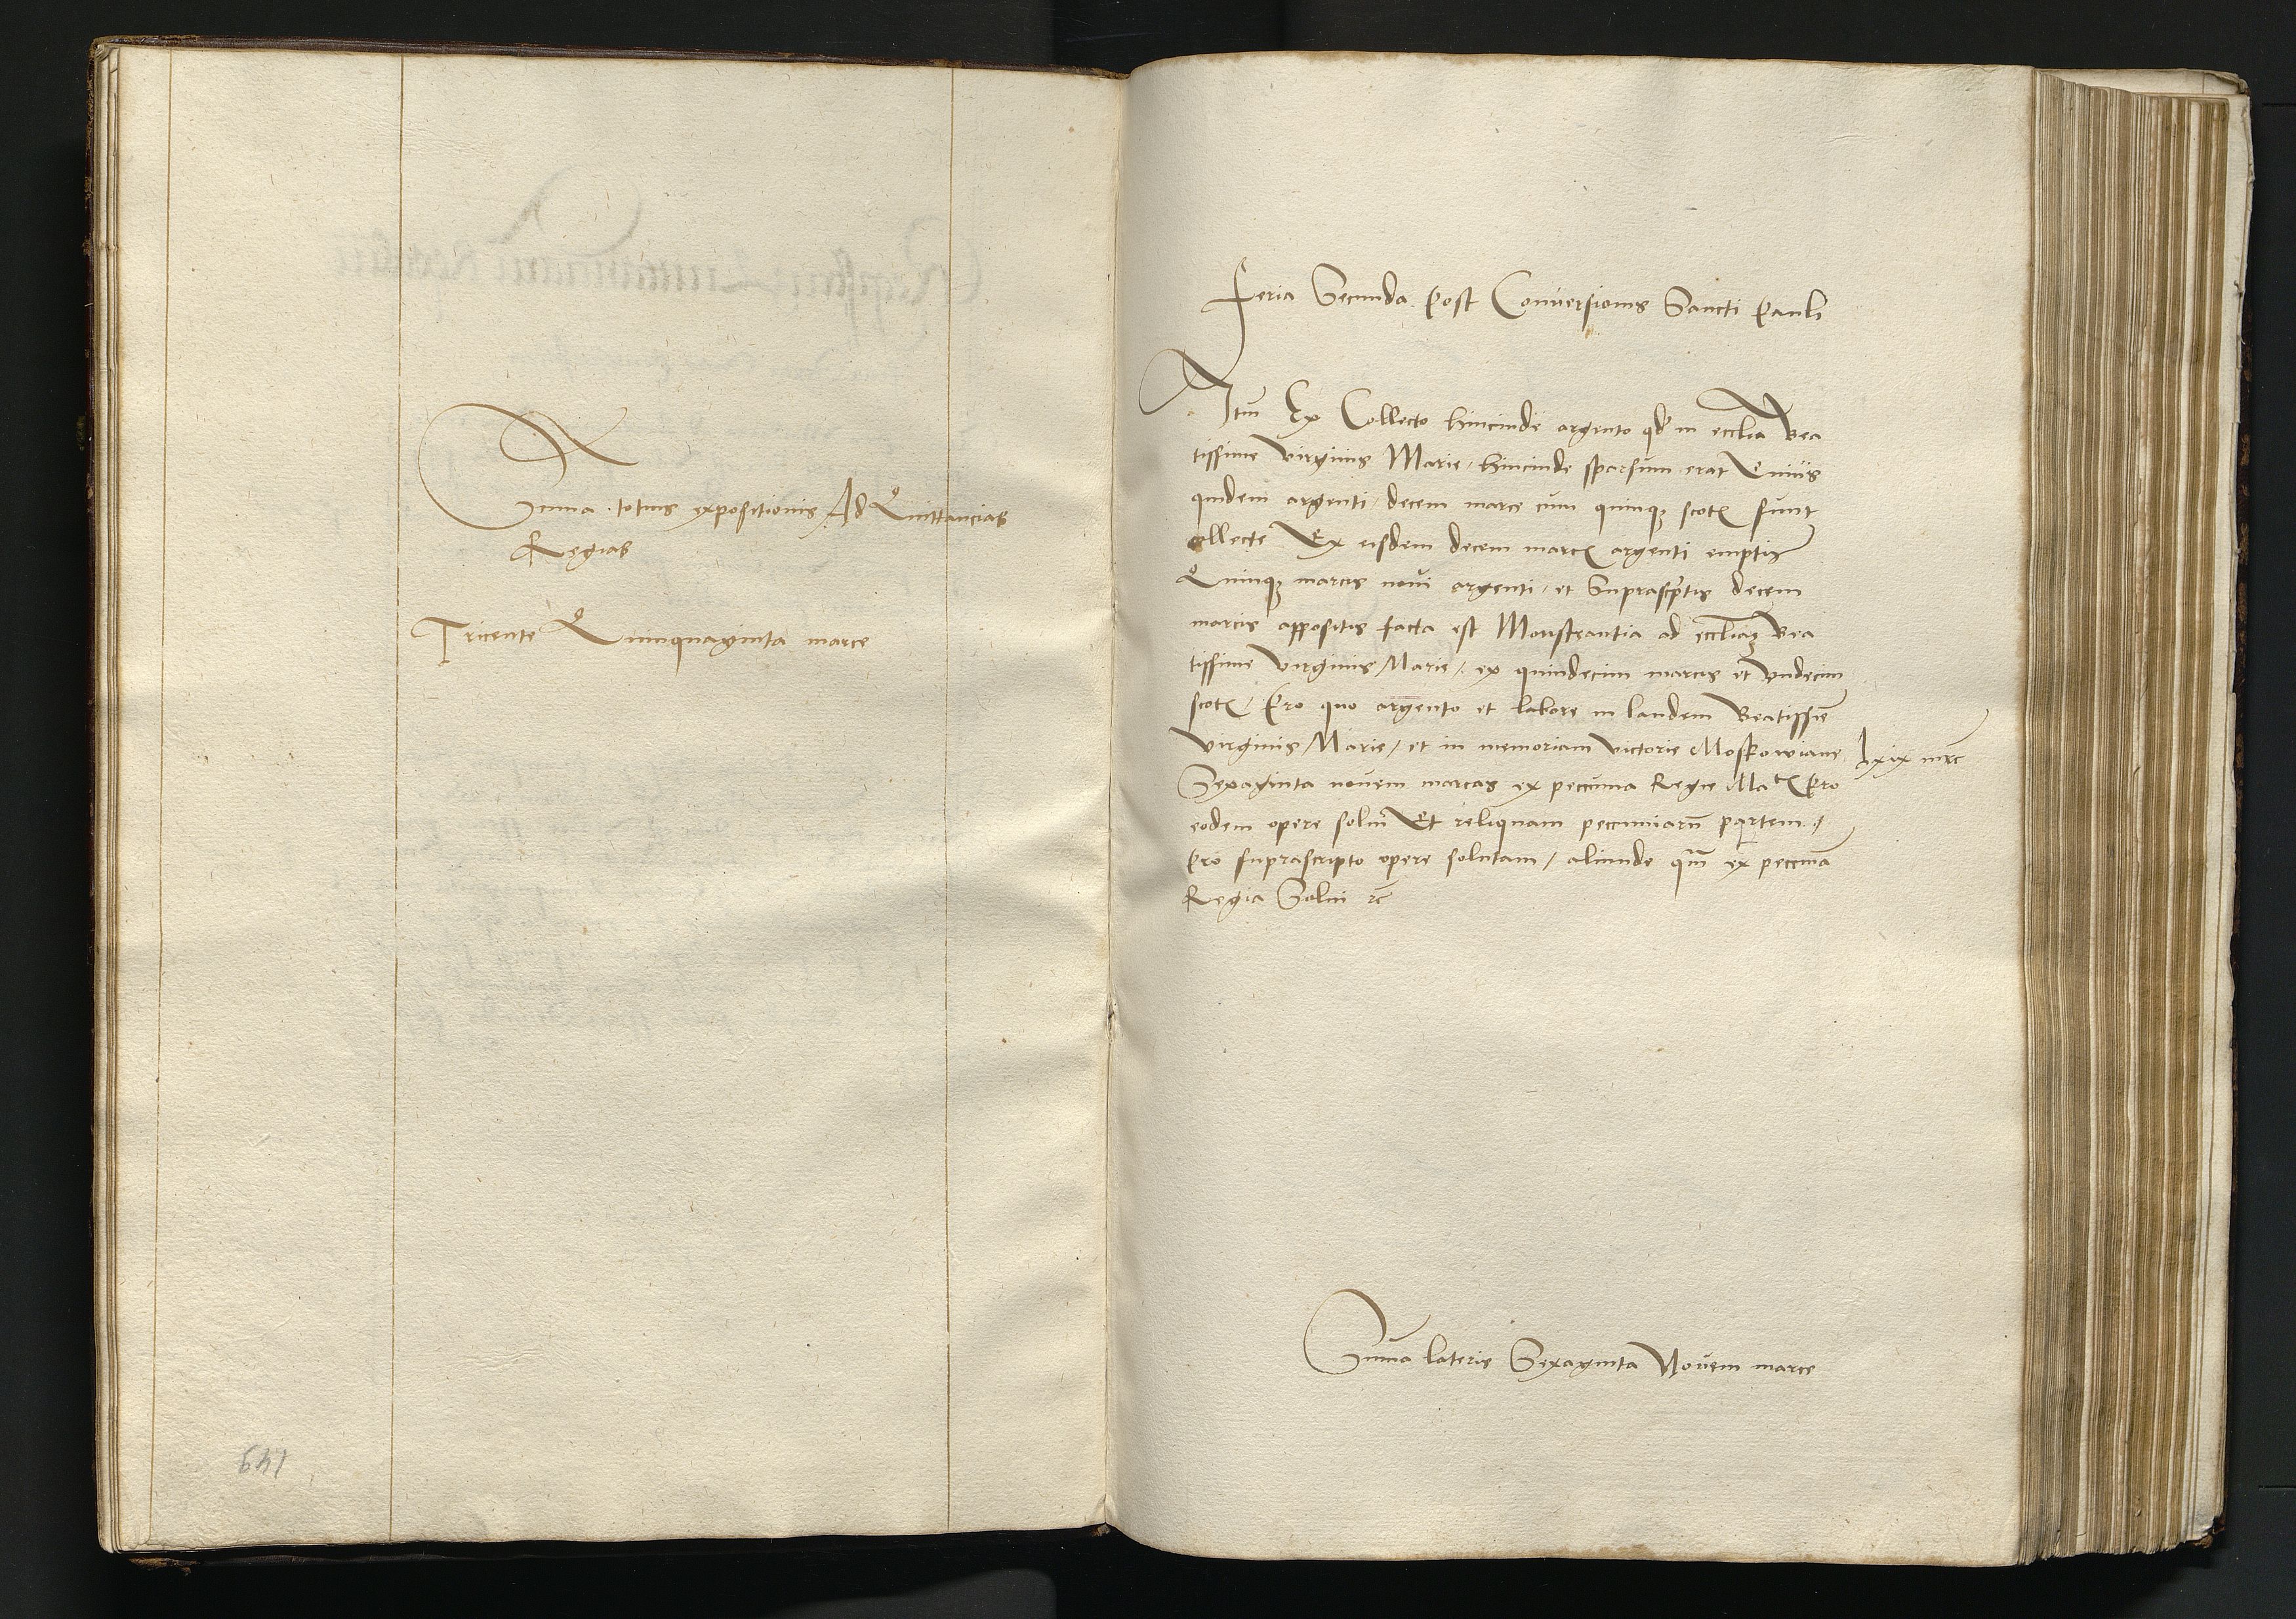 Suma totius expositionis Ad Quittancias
Regias
Tricente Quinquaginta marce
149
Feria Secunda post Conversionis Sancti Pauli
Itm Ex Collecto hincinde argento qd in ecclia Bea
tissime virginis Marie, hincinde sparsum erat Cuius
quidem argenti, decem marce cum quinqz scot sunt
collecte Ex eisdem decem marc argenti emptis
Quinqz marcis novi argenti, et Suprascptis decem
marcis appositis facta est Monstrantia ad eccliaz Bea
tissime virginis Marie, ex quindecim marcis et Undecim
scot, Pro quo argento et labore in laudem Beatissie
virginis Marie, et in memoriam victorie Moskowiane
lxix mrc
Sexaginta novem marcas ex peccunia Regie Mat Pro
eodem opere solui Et reliquam peccuniaru partem
pro suprascripto opere solutam, aliunde qm ex peccuia
Regia Solui rc
Suma lateris Sexaginta Novem marce